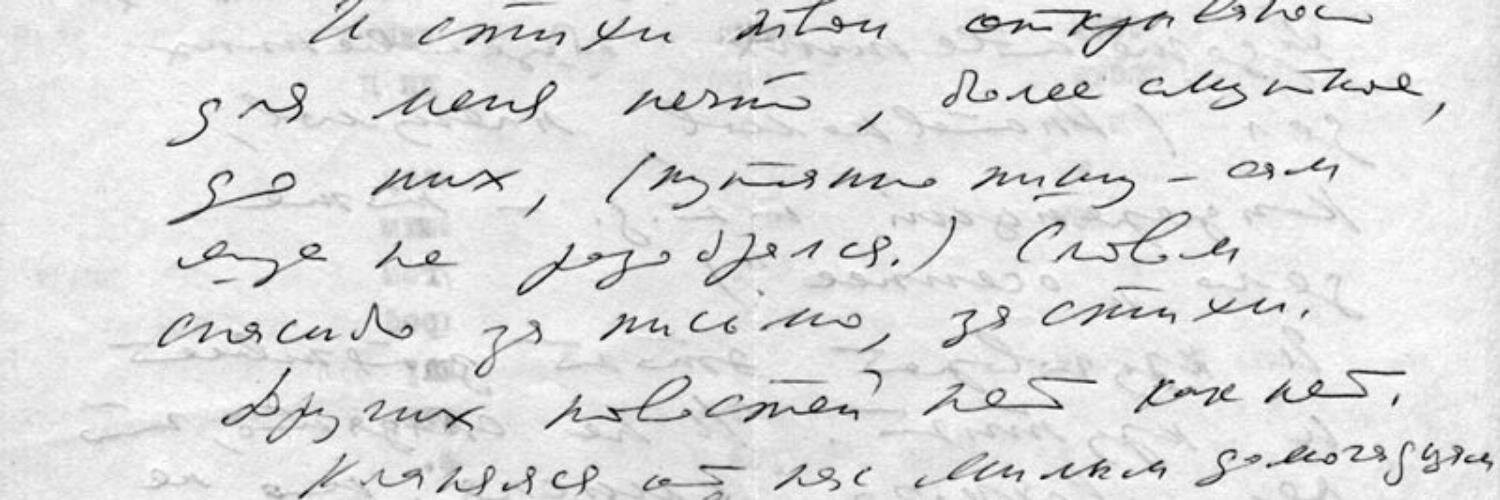 И стихи твои открывают
для меня нечто, более смутное,
до них, (путянно пишу – сам
еще не разобрался.) Словом
спасибо за письмо, за стихи.
Других новостей нет как нет.
Кланяйся от нас милым домочадцам